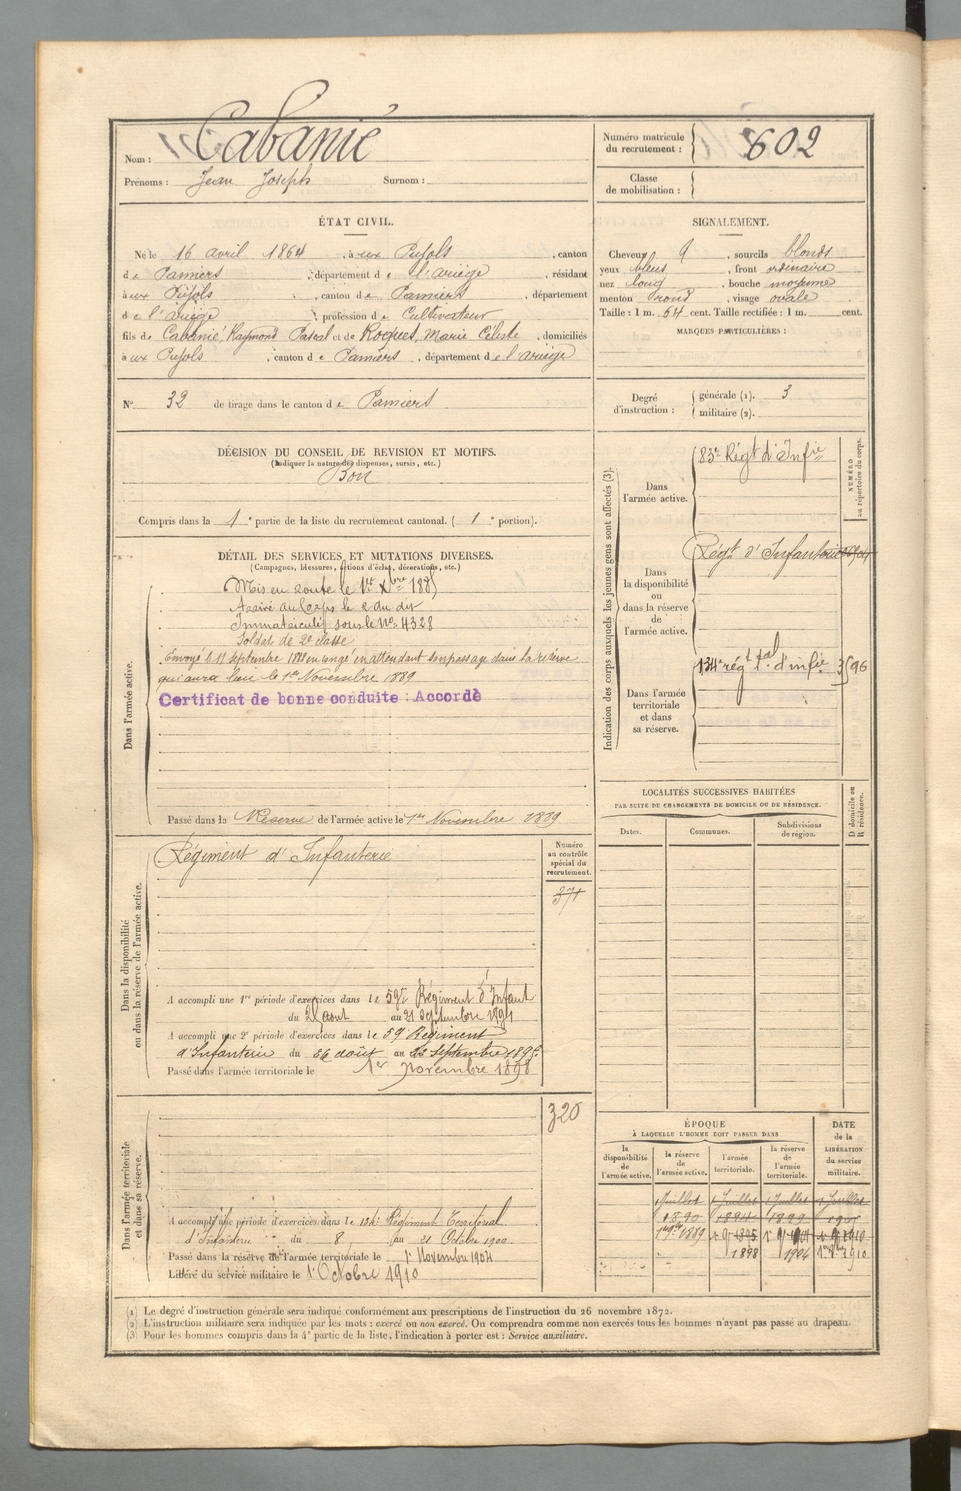 Nom : Cabanié
Prénoms : Jean Joseph Surnom :
Numéro matricule du recrutement : 602
Classe de mobilisation :
ÉTAT CIVIL.
Né le 16 avril 1864, à ux Pujols, canton
de Pamiers, département de l'ariège, résidant
à ux Pujols, canton de Pamiers, département
de l'ariège, profession de Cultivateur
fils de Cabanié, Raymond Pascal et de Roques, Marie Céleste, domiciliés
à ux Pujols, canton de Pamiers, département de l'ariège
SIGNALEMENT.
Cheveux, sourcils blonds
yeux bleus, front ordinaire
nez long, bouche moyenne
menton rond, visage ovale
Taille : 1 m. 64 cent. Taille rectifiée : 1 m. cent.
MARQUES PARTICULIÈRES :
N° 32 de tirage dans le canton de Pamiers
Degré d'instruction : générale (1). 3
militaire (2).
DÉCISION DU CONSEIL DE REVISION ET MOTIFS.
(Indiquer la nature des dispenses, sursis, etc.)
Bon
Compris dans la 1e partie de la liste du recrutement cantonal. (1e portion).
DÉTAIL DES SERVICES ET MUTATIONS DIVERSES.
(Campagnes, blessures, actions d'éclat, décorations, etc.)
Dans l'armée active.
Mis en route le 1er Xbre 1885
Arrivé au Corps le 2 du dit
Immatriculé sous le No 4328
Soldat de 2e classe
Envoyé le septembre en congé en attendant son passage dans la réserve
qui aura lieu le 1er Novembre 1889
Certificat de bonne conduite : Accordé
Passé dans la Réserve de l'armée active le 1er Novembre 1889
Indication des corps auxquels les jeunes gens sont affectés (3).
NUMÉRO au répertoire du corps.
Dans l'armée active.
83e Régt d'Infie
Dans la disponibilité ou dans la réserve de l'armée active.
Régt d'Infanterie
Dans l'armée territoriale et dans sa réserve.
134e régt tal d'infie 3596
LOCALITÉS SUCCESSIVES HABITÉES
PAR SUITE DE CHANGEMENTS DE DOMICILE OU DE RÉSIDENCE.
Dates. Communes. Subdivisions de région. D. domicile ou R. résidence.
Dans la disponibilité ou dans la réserve de l'armée active.
Régiment d'Infanterie
Numéro au contrôle spécial du recrutement.
371
A accompli une 1re période d'exercices dans le 59e Régiment d'Infant
du aout au 21 septembre 1891
A accompli une 2e période d'exercices dans le 59 Régiment
d'Infanterie du 26 août au septembre
Passé dans l'armée territoriale le 1er novembre 1898
Dans l'armée territoriale et dans sa réserve.
320
A accompli une période d'exercices dans le 134e Régiment Territorial
d'Infanterie du 8 au 21 Octobre 1900
Passé dans la réserve de l'armée territoriale le 1r Novembre 1904
Libéré du service militaire le 1r Octobre 1910
ÉPOQUE
À LAQUELLE L'HOMME DOIT PASSER DANS
DATE de la LIBÉRATION du service militaire.
la disponibilité de l'armée active. la réserve de l'armée active. l'armée territoriale. la réserve de l'armée territoriale.
1 Juillet 1 Juillet 1 Juillet 1 Juillet
1890 1894 1899
1889 1895 1910
1898 1904 1910
(1) Le degré d'instruction générale sera indiqué conformément aux prescriptions de l'instruction du 26 novembre 1872.
(2) L'instruction militaire sera indiquée par les mots : exercé ou non exercé. On comprendra comme non exercés tous les hommes n'ayant pas passé au drapeau.
(3) Pour les hommes compris dans la 4e partie de la liste, l'indication à porter est : Service auxiliaire.